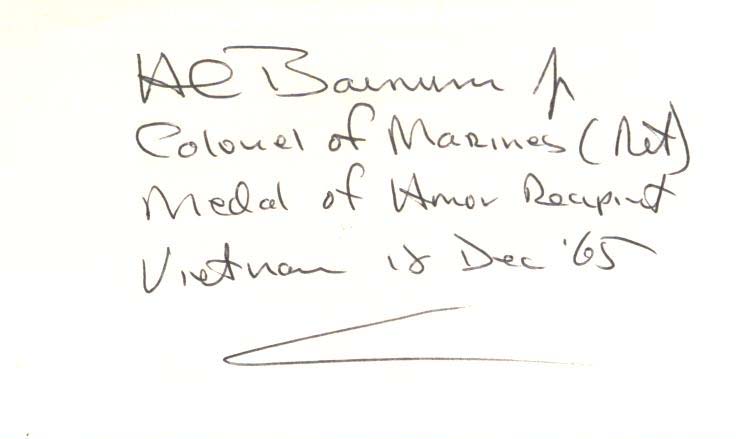 HC Barnum Jr
Colonel of Marines (Ret)
Medal of Honor Recipient
Vietnam 18 Dec '65